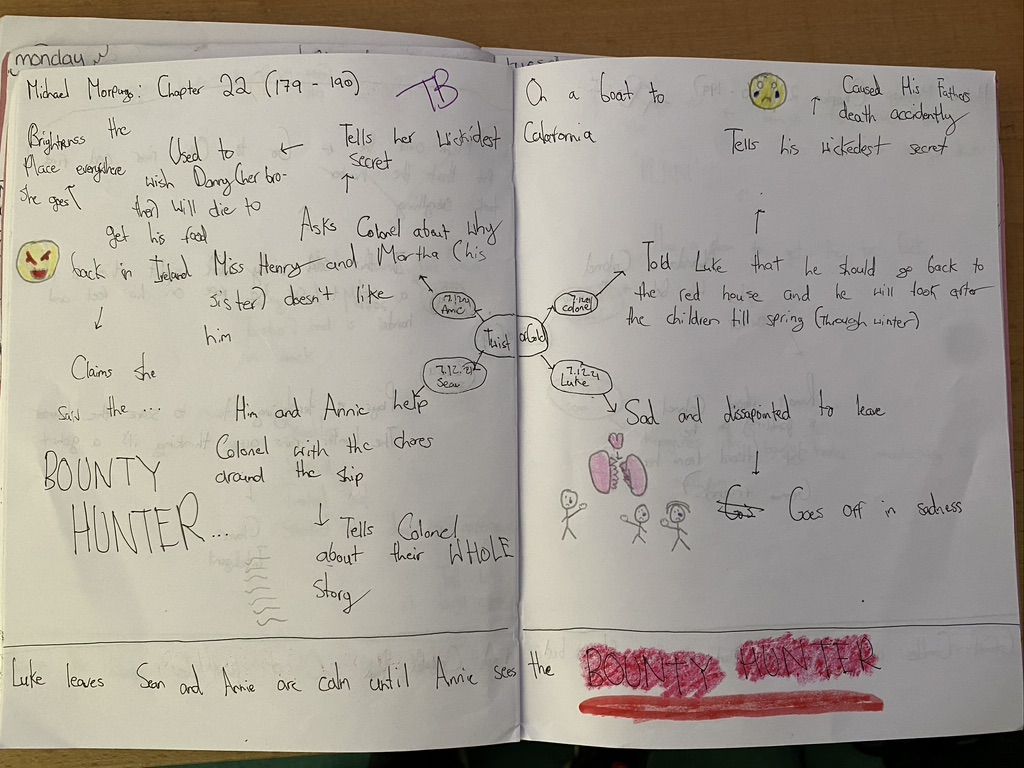 monday
Michael Morpugo: Chapter 22 (179 - 190)
TB
Brightness the
Place everywhere
she goes
Used to
wish Danny (her bro-
ther) will die to
get his food
back in Ireland
Tells her wickidest
secret
Asks Colonel about why
Miss Henry and Martha (his
sister) doesn't like
him
7.12.21
Annie
Claims she
saw the ...
BOUNTY
HUNTER...
7.12.21
Sean
Him and Annie help
Colonel with the chores
around the ship
Tells Colonel
about their WHOLE
story
Twist of Gold
On a boat to
Calafornia
Caused His Fathers
death accidently
Tells his wickedest secret
7.12.21
colonel
Told Luke that he should go back to
the red house and he will took after
the children till spring (through winter)
7.12.21
Luke
Sad and dissapointed to leave
Goes off in sadness
Luke leaves Sean and Annie are calm until Annie sees the BOUNTY HUNTER